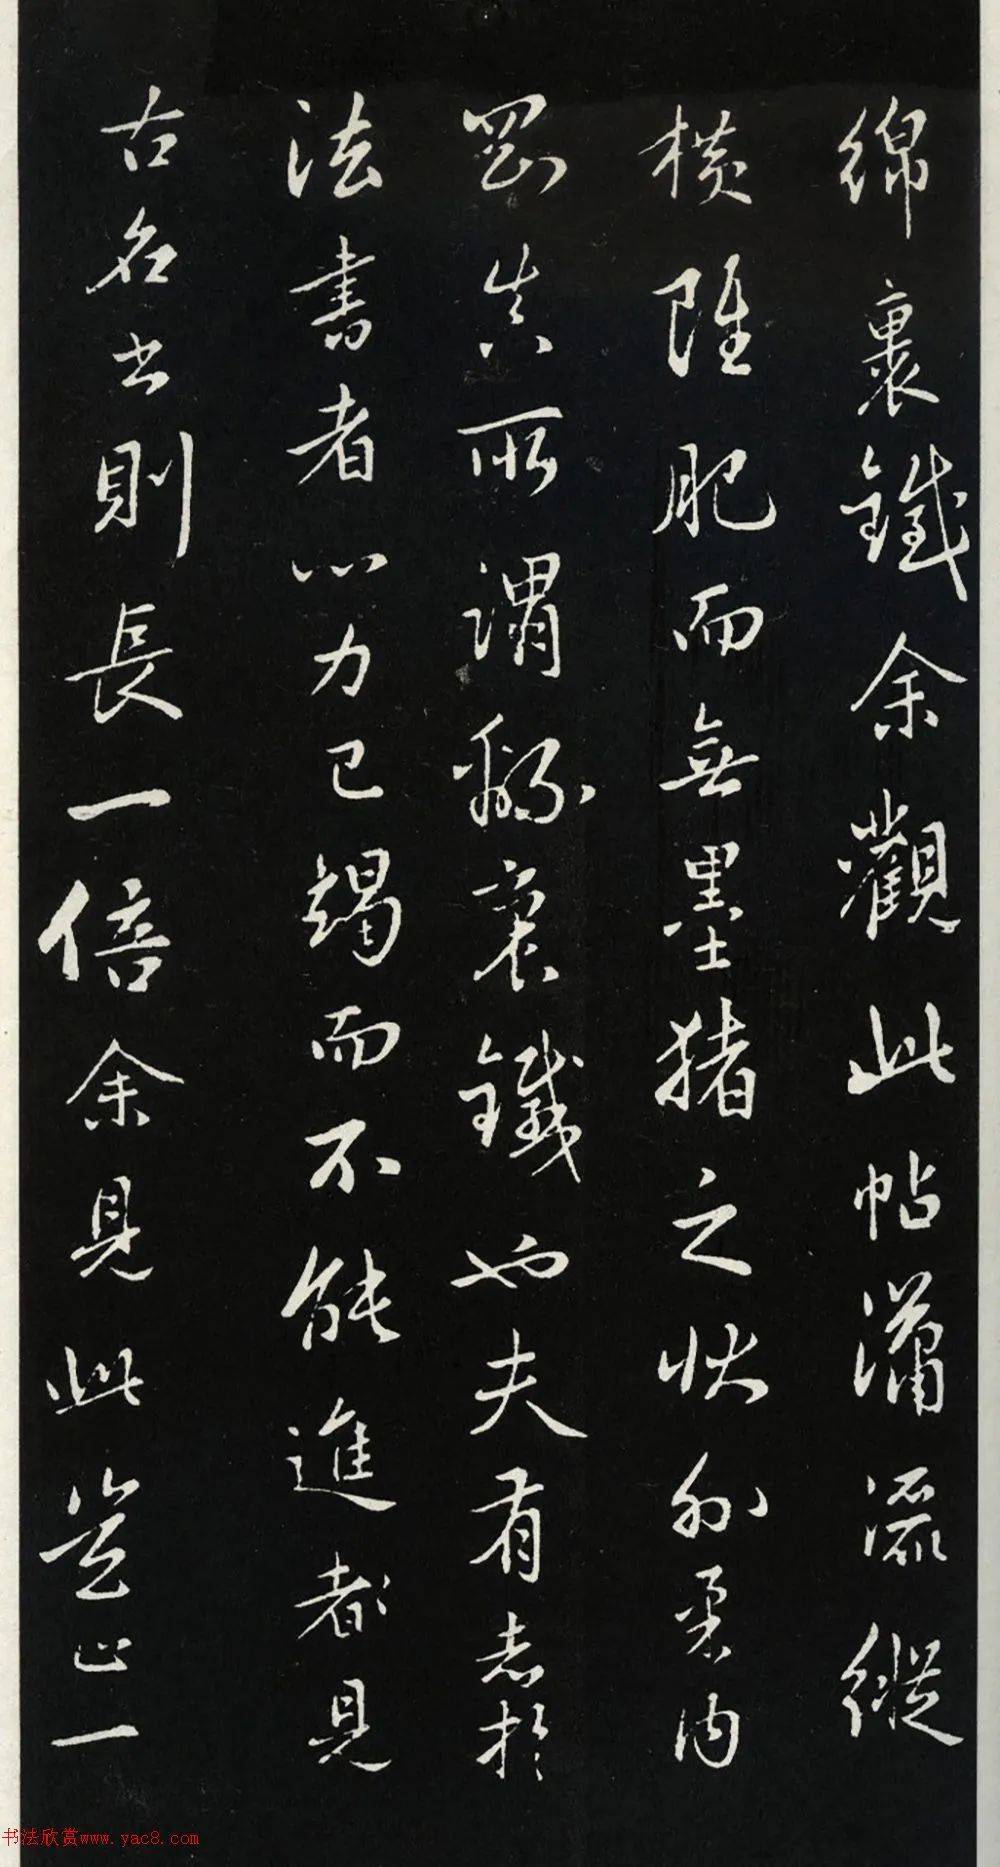 綿裹鐵余觀此帖瀟灑縱
橫雖肥而無墨猪之狀外柔内
剛真所謂綿裹鐵也夫有志於
法書者心力已竭而不能進者見
古名書則長一倍余見此豈止一
书法欣赏www.yac8.com